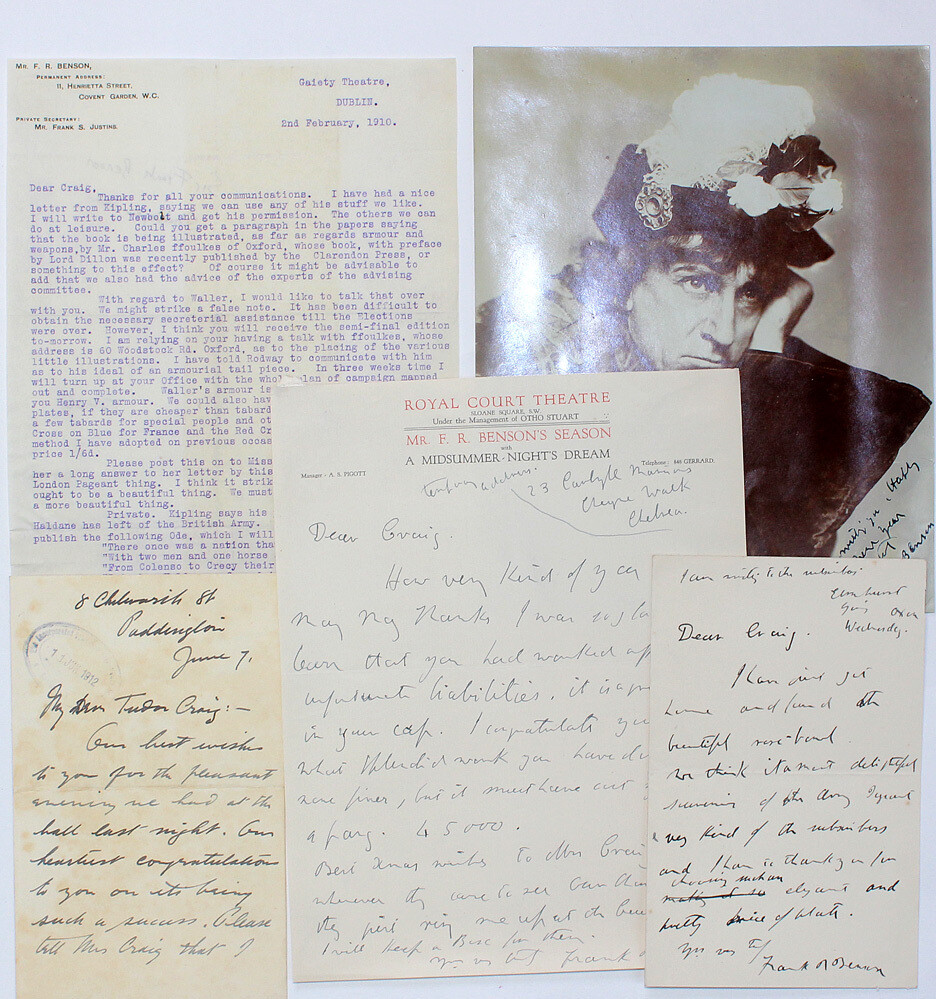 Mr. F. R. BENSON,
PERMANENT ADDRESS:
11, HENRIETTA STREET,
COVENT GARDEN, W.C.
PRIVATE SECRETARY:
MR. FRANK S. JUSTINS.
Gaiety Theatre,
DUBLIN.
2nd February, 1910.
Dear Craig,
Thanks for all your communications. I have had a nice
letter from Kipling, saying we can use any of his stuff we like.
I will write to Newbolt and get his permission. The others we can
do at leisure. Could you get a paragraph in the papers saying
that the book is being illustrated, as far as regards armour and
weapons,by Mr. Charles ffoulkes of Oxford, whose book, with preface
by Lord Dillon was recently published by the Clarendon Press, or
something to this effect? Of course it might be advisable to
add that we also had the advice of the experts of the advising
committee.
With regard to Waller, I would like to talk that over
with you. We might strike a false note. It has been difficult to
obtain the necessary secreterial assistance till the Elections
were over. However, I think you will receive the semi-final edition
to-morrow. I am relying on your having a talk with ffoulkes, whose
address is 60 Woodstock Rd. Oxford, as to the placing of the various
little illustrations. I have told Rodway to communicate with him
as to his ideal of an armourial tail piece. In three weeks time I
will turn up at your Office with the whole plan of campaign mapped
out and complete. Waller's armour is
you Henry V. armour. We could also hav
plates, if they are cheaper than tabard
a few tabards for special people and ot
Cross on Blue for France and the Red Cr
method I have adopted on previous occas
price 1/6d.
Please post this on to Miss
her a long answer to her letter by this
London Pageant thing. I think it strik
ought to be a beautiful thing. We must
a more beautiful thing.
Private. Kipling says his
Haldane has left of the British Army.
publish the following Ode, which I will
"There once was a nation tha
"With two men and one horse
"From Colenso to Crecy their
ROYAL COURT THEATRE
SLOANE SQUARE, S.W.
Under the Management of OTHO STUART
MR. F. R. BENSON'S SEASON
with
A MIDSUMMER-NIGHT'S DREAM
Manager - A. S. PIGOTT
Telephone: 848 GERRARD.
Temporary address.
23 Carlyle Mansions
Cheyne Walk
Chelsea.
Dear Craig.
How very kind of you
many many thanks I was so gla
learn that you had worked off
unfortunate liabilities. it is a
in your cap. I congratulate you
what splendid work you have do
none finer, but it must have cost
a pang. 45000.
Best Xmas wishes to Mrs Craig
whenever they care to see
they just ring me up at the
I will keep a Box for them.
Yrs as ever Frank
year
Benson
8 Chilworth St
Paddington
June 7.
1912
My Dear Tudor Craig:-
Our best wishes
to you for the pleasant
evening we had at the
ball last night. Our
heartiest congratulations
to you on its being
such a success. Please
tell Mrs Craig that I
I am writing to the subscribers
Oxon
Wednesday.
Dear Craig.
I have just got
home and found the
beautiful rosebowl.
We think it a most delightful
souvenir of the Army Pageant
very kind of the subscribers
and I have to thank you for
choosing such an
elegant and
pretty piece of plate.
Yrs as ever
Frank R Benson